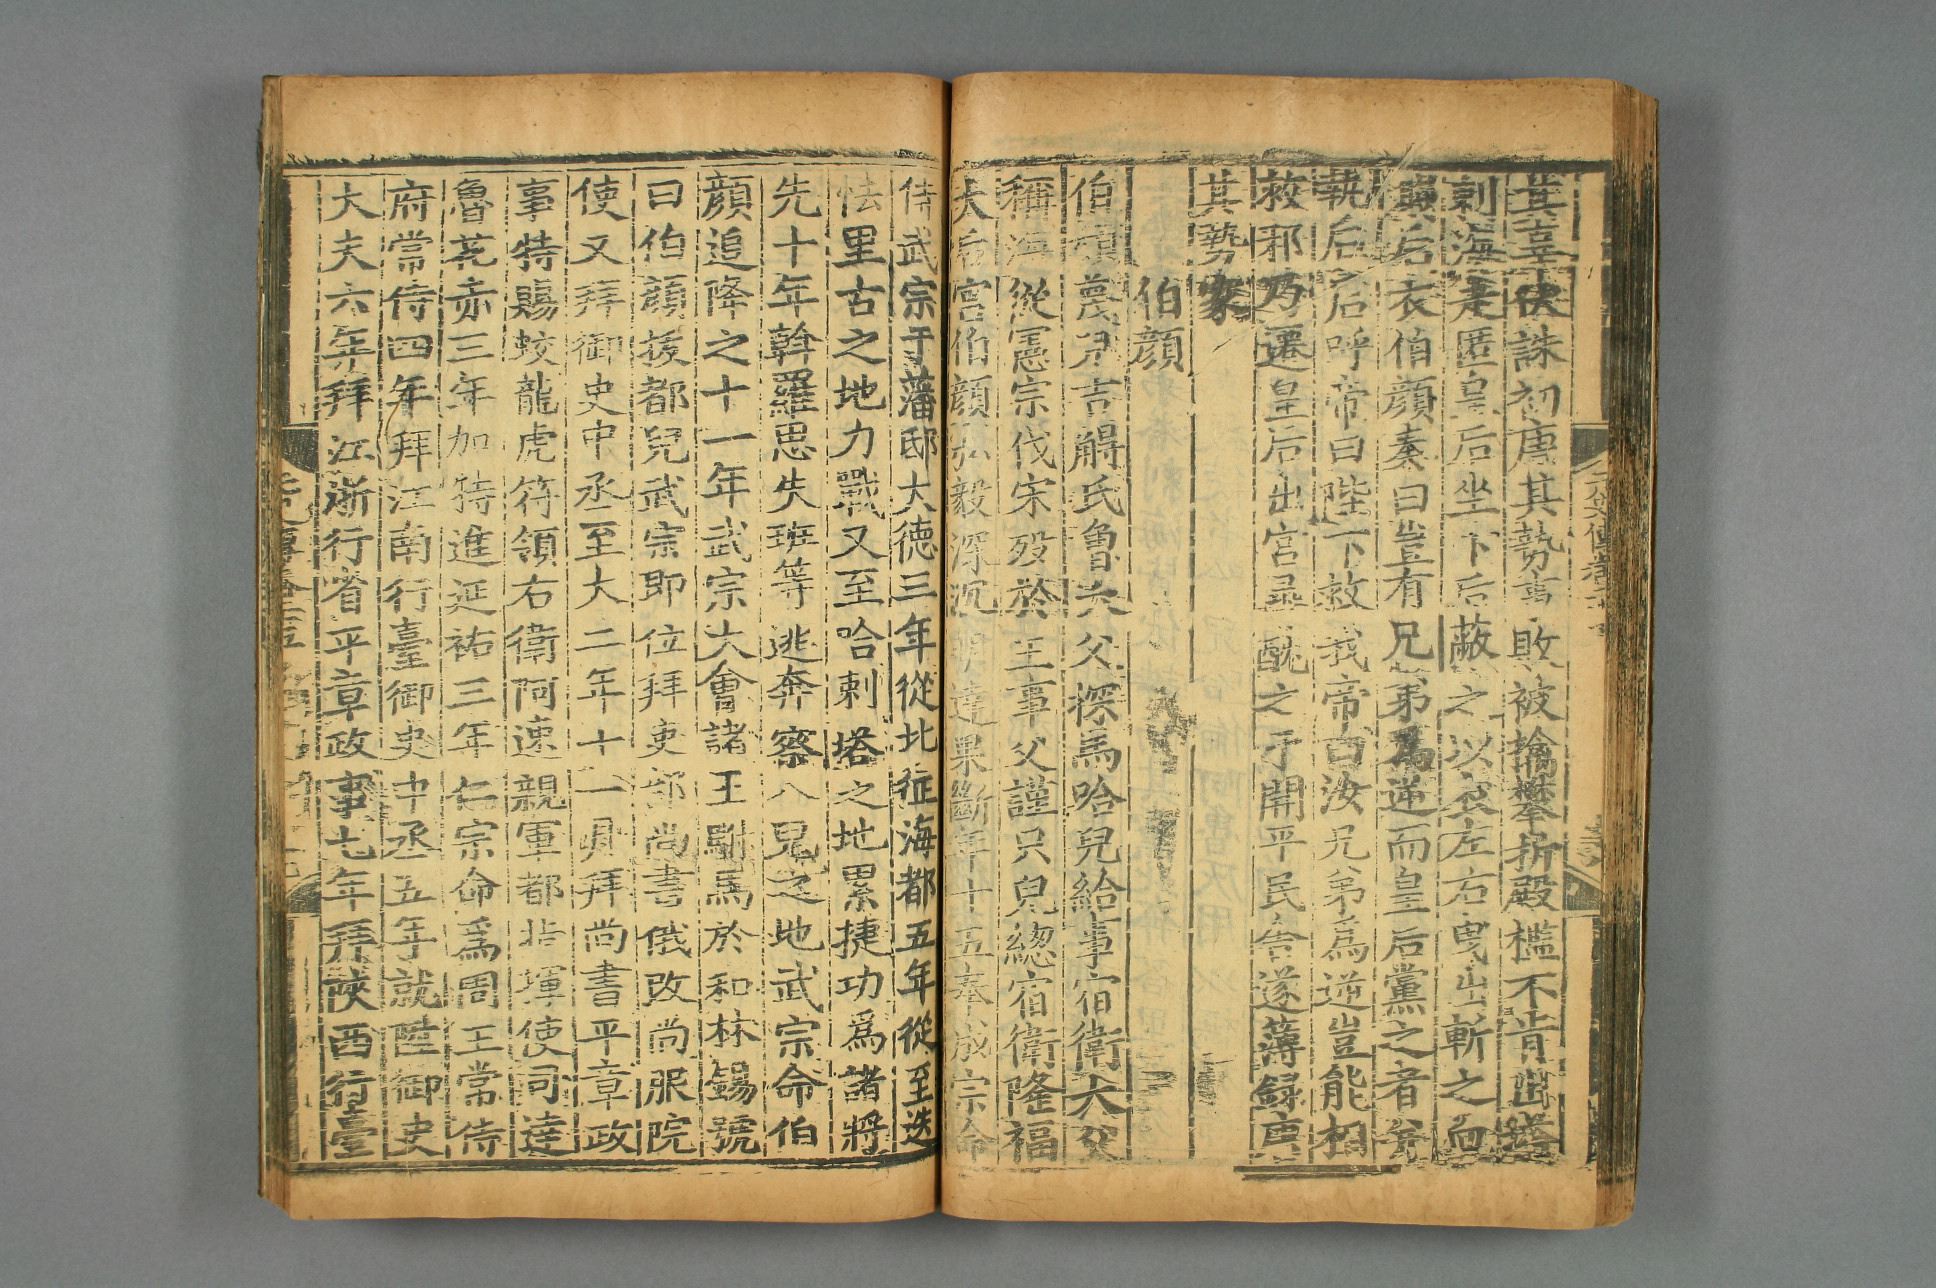 其喜伏誅初唐其勢事敗被擒攀折殿檻不肯出塔
剌海走匿皇后坐下后蔽之以衣左右曳出斬之血
濺后衣伯顏奏曰豈有兄弟為逆而皇后黨之者并
執后之后呼帝曰陛下救我帝曰汝兄弟為逆豈能相
救邪乃遷皇后出宮尋酖之于開平民舍遂薄錄唐
其勢家
伯顏
伯顏蔑兒吉䚟氏曾大父探馬哈兒給事宿衛大父
稱海從憲宗伐宋歿於王事父謹只兒總宿衛隆福
太后宮伯顏弘毅深沉明達果斷年十五奉成宗命
侍武宗于藩邸大德三年從北征海都五年從至迭
怯里古之地力戰又至哈剌塔之地累捷功為諸將
先十年斡羅思失班等逃奔察八兒之地武宗命伯
顏追降之十一年武宗大會諸王駙馬於和林錫號
曰伯顏拔都兒武宗即位拜吏部尚書俄改尚服院
使又拜御史中丞至大二年十一月拜尚書平章政
事特賜蛟龍虎符領右衛阿速親軍都指揮使司達
魯花赤三年加特進延祐三年仁宗命為周王常侍
府常侍四年拜江南行臺御史中丞五年就陞御史
大夫六年拜江浙行省平章政事七年拜陝西行臺